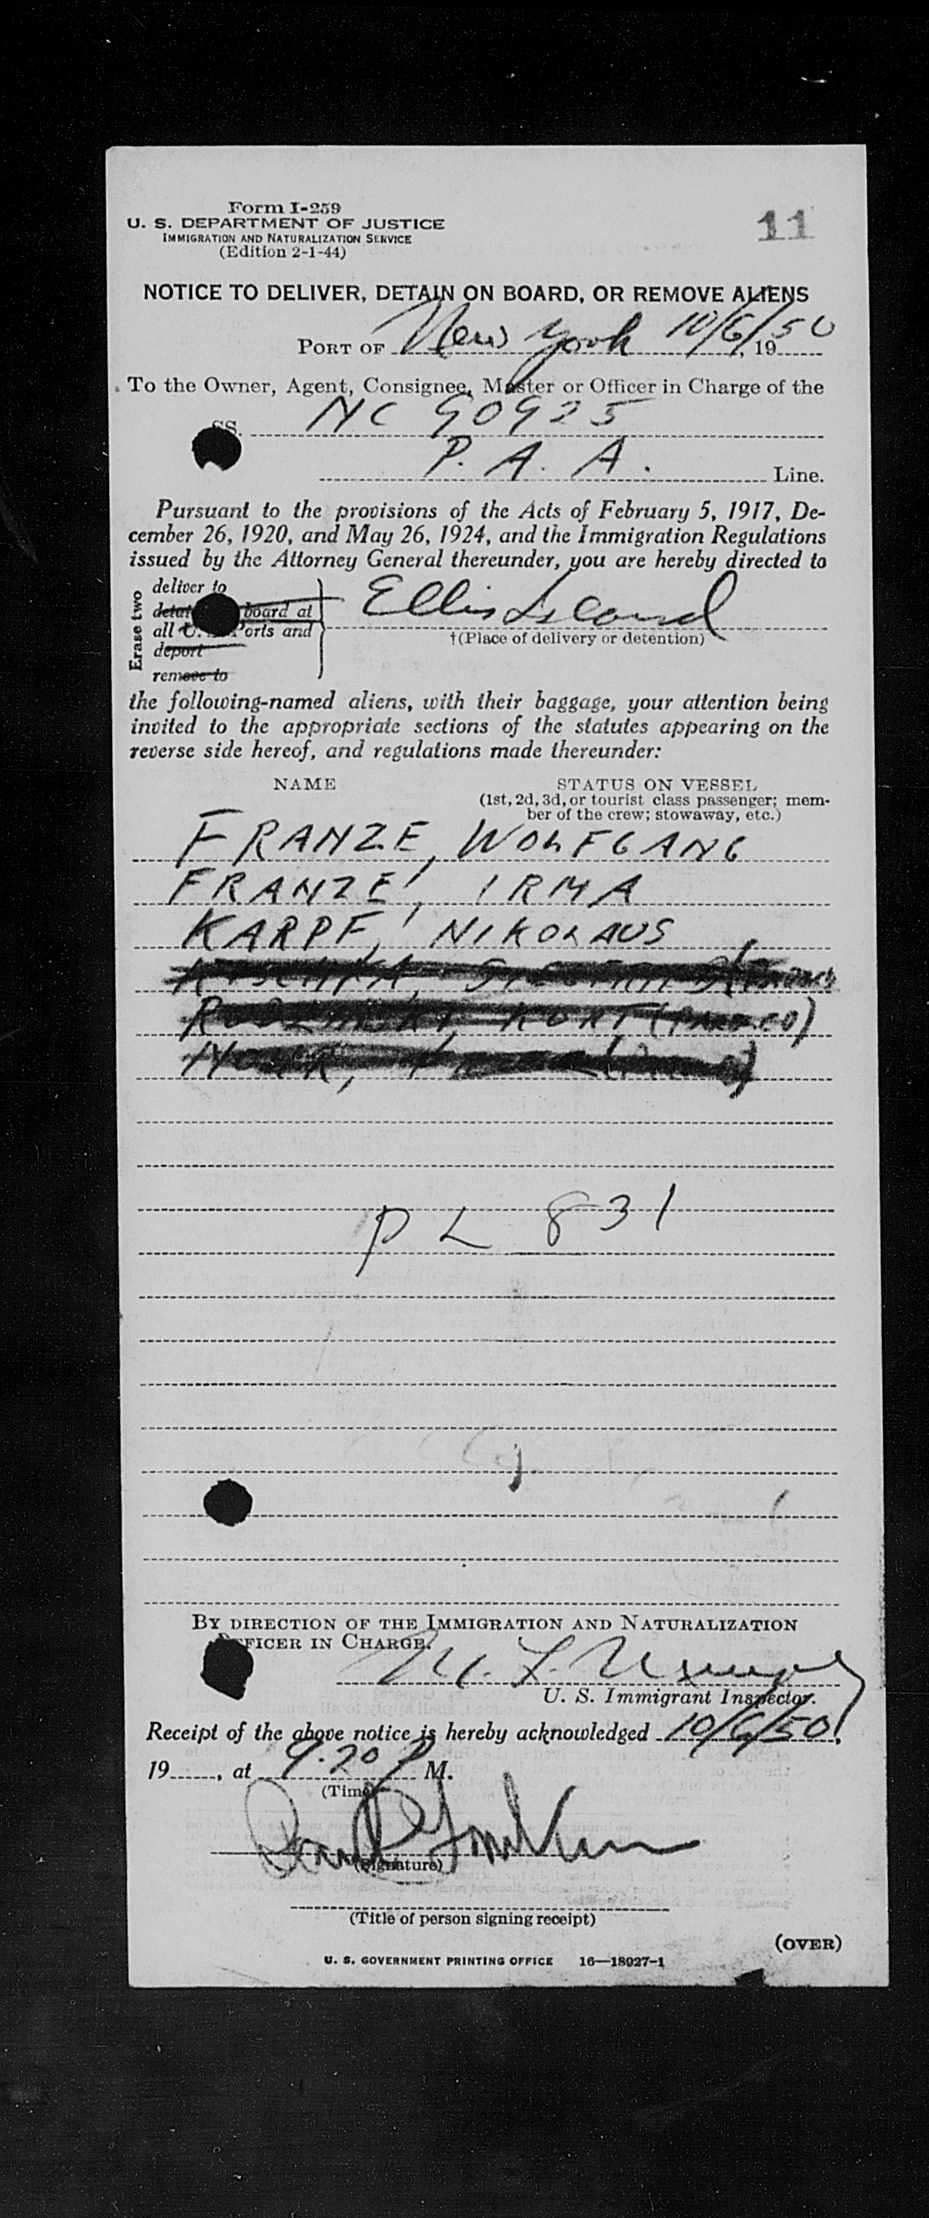 Form I-259
U. S. DEPARTMENT OF JUSTICE
IMMIGRATION AND NATURALIZATION SERVICE
(Edition 2-1-44)
11
NOTICE TO DELIVER, DETAIN ON BOARD, OR REMOVE ALIENS
PORT OF New York 10/6/50, 19
To the Owner, Agent, Consignee, Master or Officer in Charge of the
SS. NC 90925
P. A. A. Line.
Pursuant to the provisions of the Acts of February 5, 1917, De-
cember 26, 1920, and May 26, 1924, and the Immigration Regulations
issued by the Attorney General thereunder, you are hereby directed to
Erase two
deliver to
board at
all U. Ports and
deport
remove to
Ellis Island
†(Place of delivery or detention)
the following-named aliens, with their baggage, your attention being
invited to the appropriate sections of the statutes appearing on the
reverse side hereof, and regulations made thereunder:
NAME STATUS ON VESSEL
(1st, 2d, 3d, or tourist class passenger; mem-
ber of the crew; stowaway, etc.)
FRANZE, WOLFGANG
FRANZE, IRMA
KARPF, NIKOLAUS
KURT
PL 831
BY DIRECTION OF THE IMMIGRATION AND NATURALIZATION
OFFICER IN CHARGE.
U. S. Immigrant Inspector.
Receipt of the above notice is hereby acknowledged 10/6/50,
19, at 9:20 P M.
(Time)
(Signature)
(Title of person signing receipt)
(OVER)
U. S. GOVERNMENT PRINTING OFFICE 16—18027-1